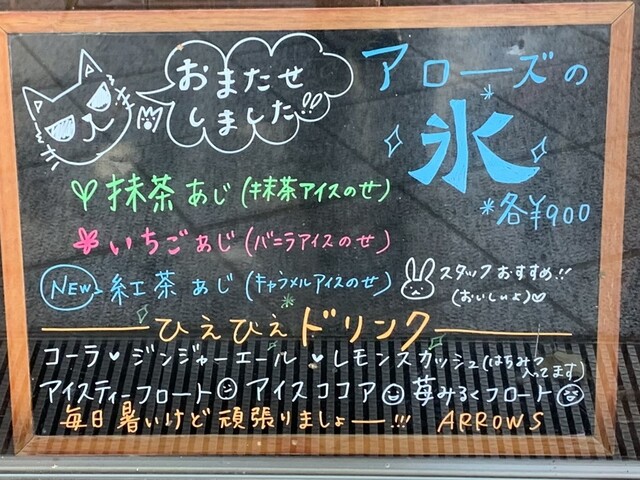 おまたせ
しました!!
アローズの
氷
*各¥900
抹茶あじ(抹茶アイスのせ)
いちごあじ(バニラアイスのせ)
NEW 紅茶あじ(キャラメルアイスのせ)
スタッフおすすめ!!
(おいしいよ)♡
ひえひえドリンク
コーラ♥ジンジャーエール ♥レモンスカッシュ(はちみつ入ってます)
アイスティーフロート アイスココア 苺みるくフロート
毎日暑いけど頑張りましょー!!! ARROWS